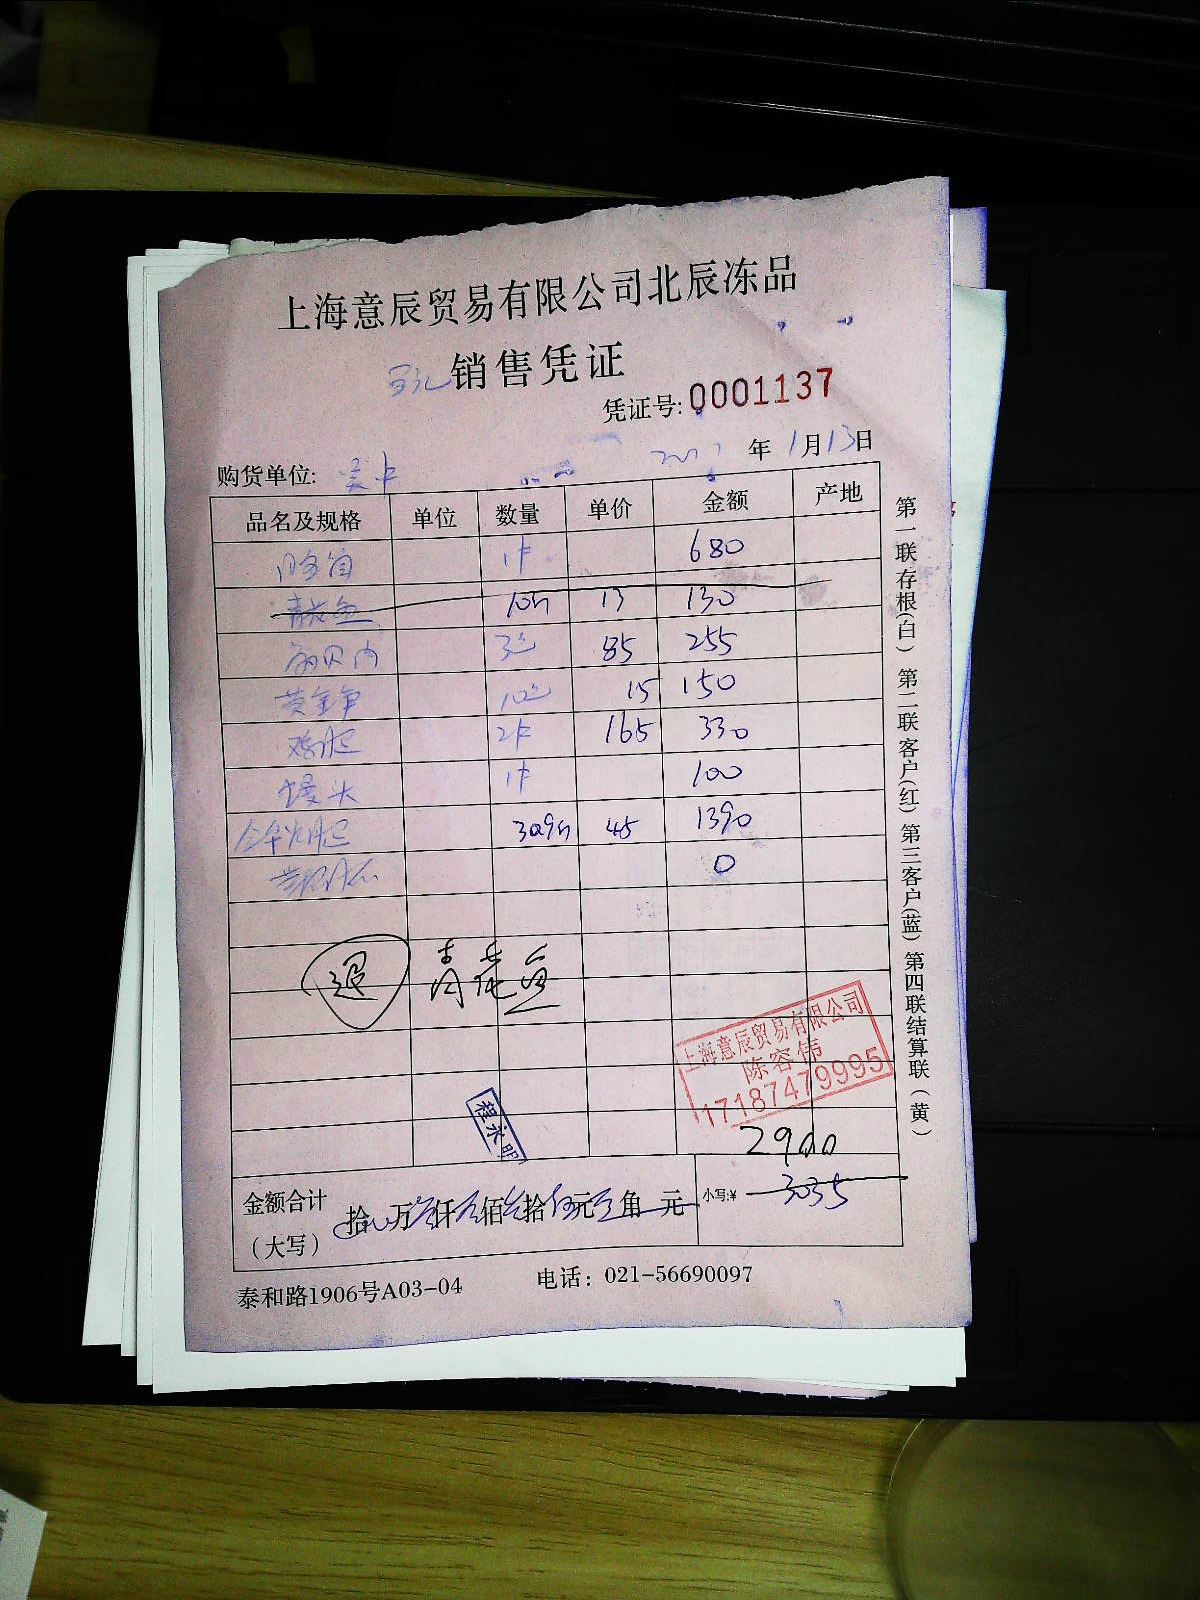 上海意辰贸易有限公司北辰冻品
销售凭证
凭证号: 0001137
年 1月13日
购货单位:
品名及规格 单位 数量 单价 金额 产地
1卡 680
青花鱼 10斤 13 130
扇贝肉 3包 85 255
黄金 10包 15 150
鸡腿 2卡 165 330
馒头 1卡 100
30.9斤 45 1390
0
退 青花鱼
上海意辰贸易有限公司
陈容伟
17187479995
程永明
2900
金额合计
(大写)
拾 万 仟 佰 拾 元 角 元
小写:¥ 3035
泰和路1906号A03-04 电话: 021-56690097
第一联存根(白) 第二联客户(红) 第三客户(蓝) 第四联结算联(黄)